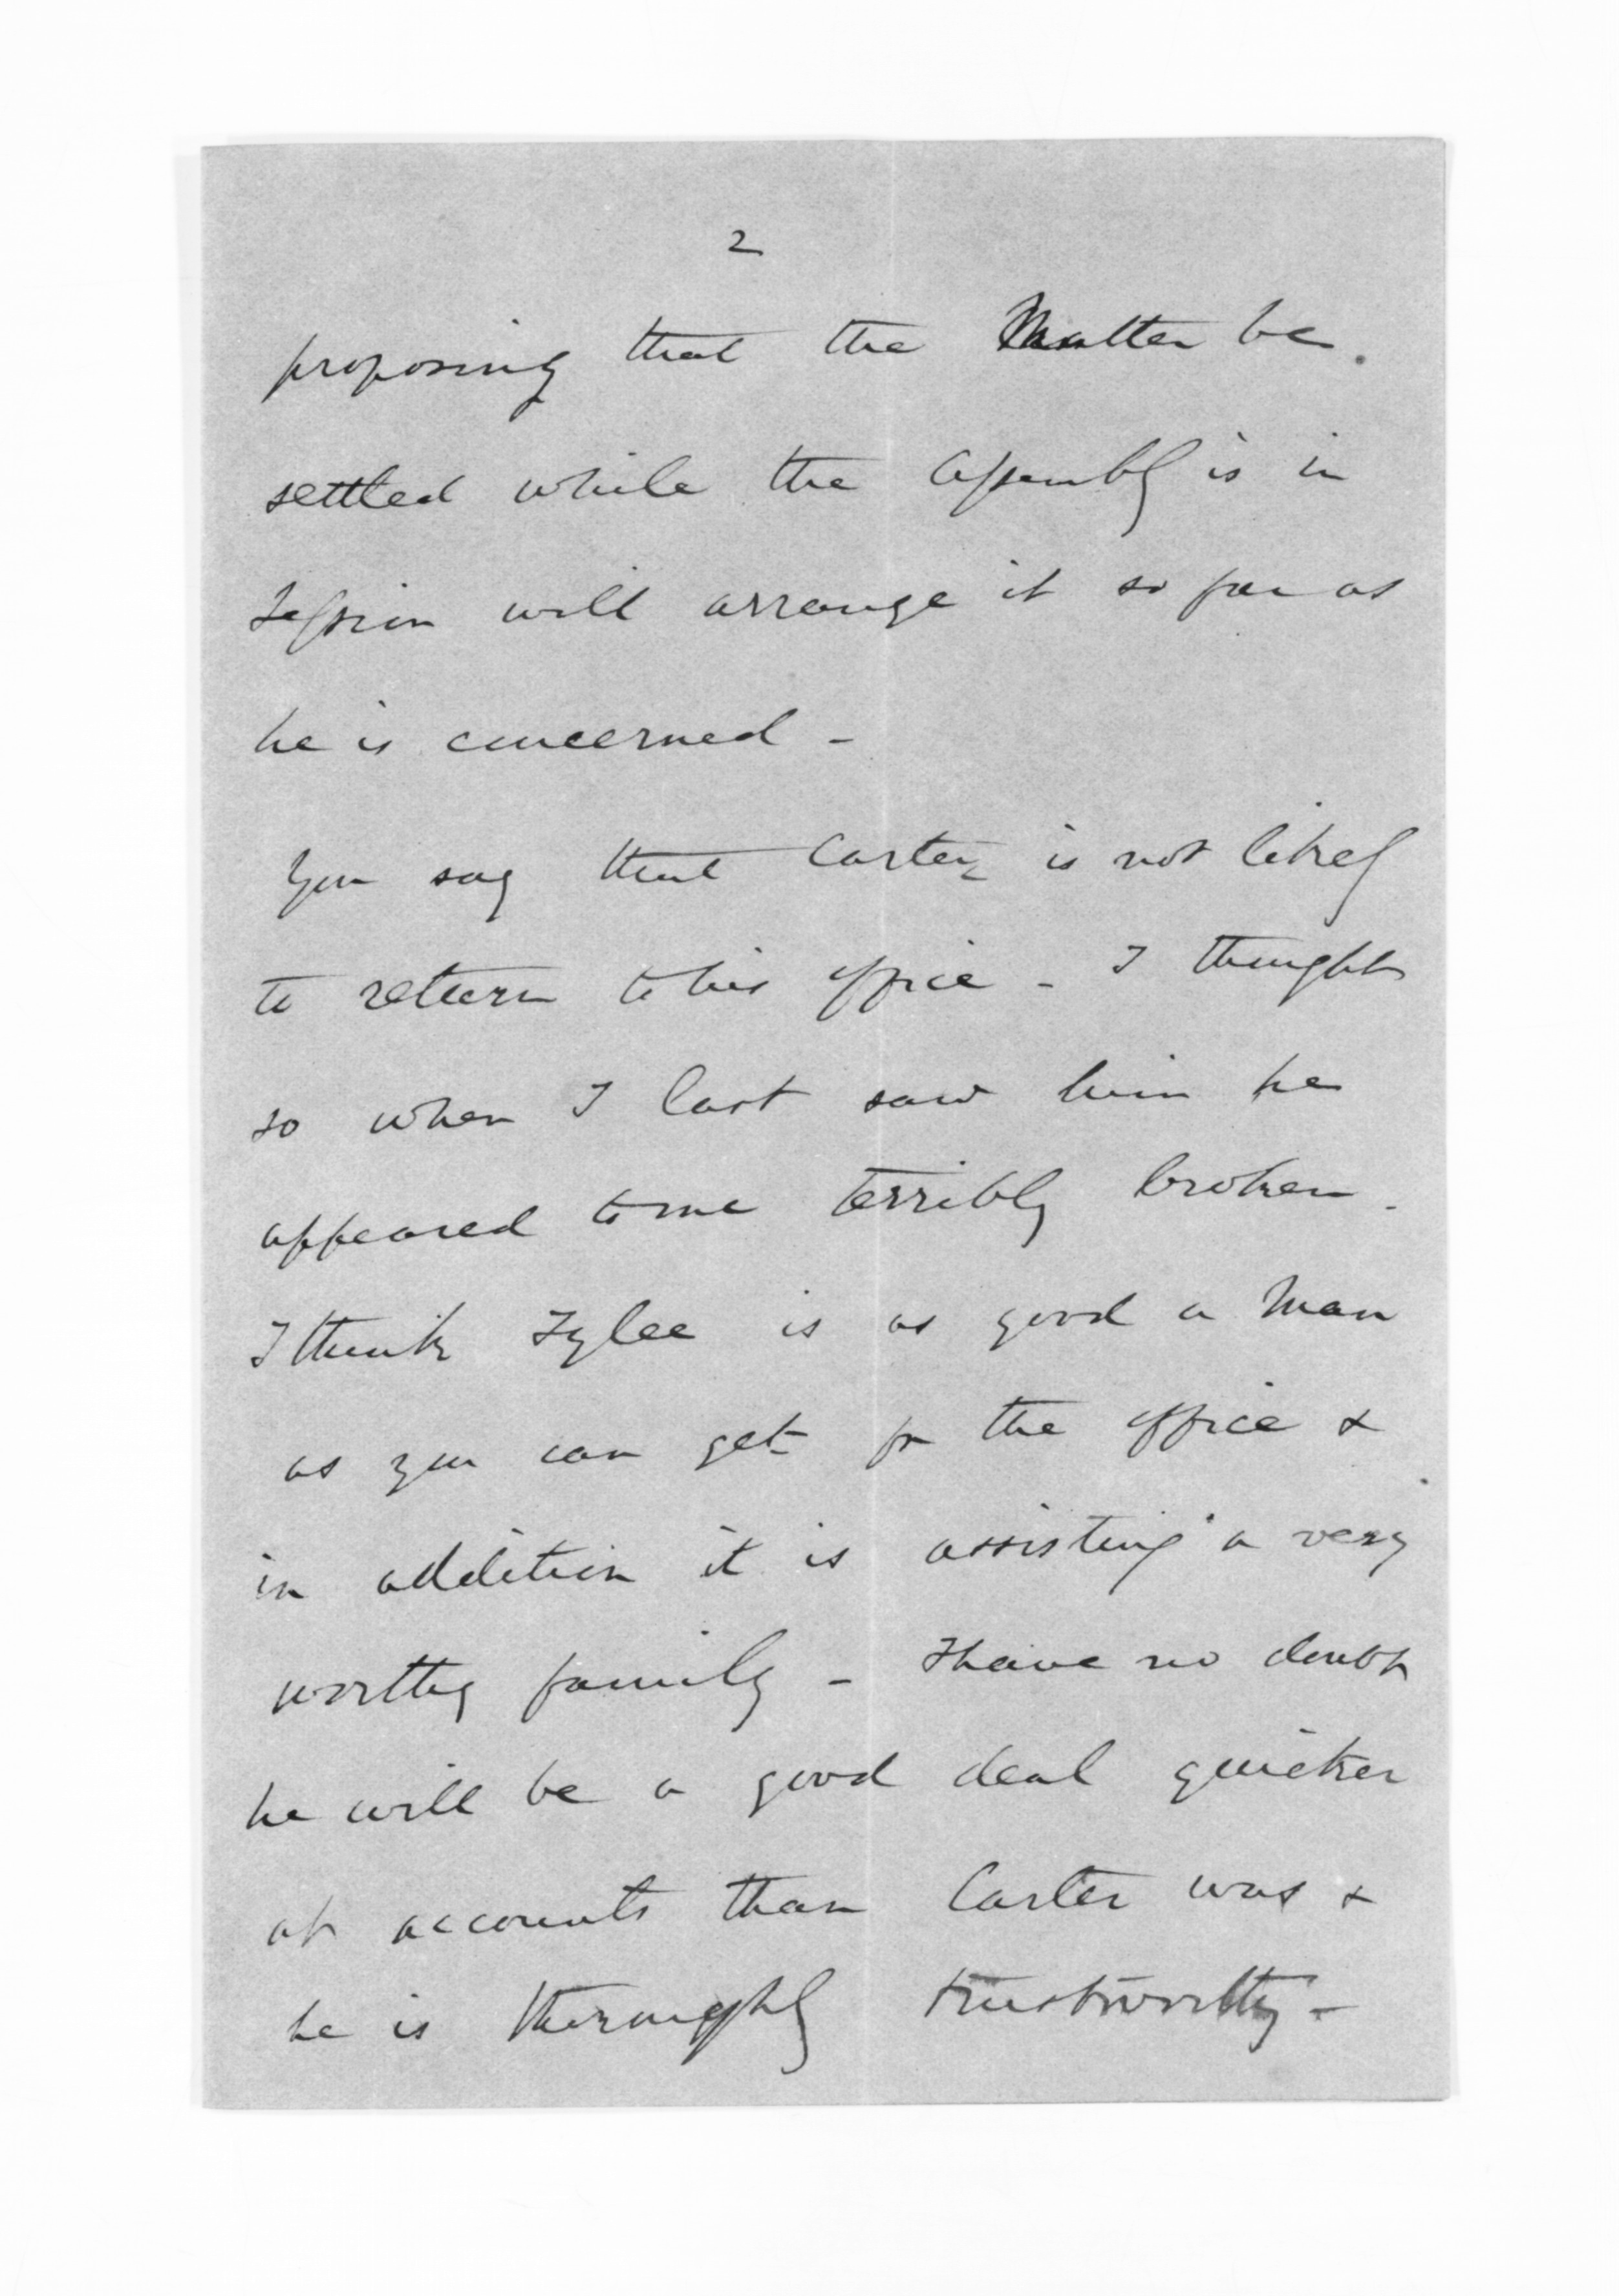 2
proposing that the Matter be
settled while the Assembly is in
Session will arrange it so far as
he is concerned -
You say that Carter is not likely
to return to his office - I thought
so when I last saw him he
appeared to me terribly broken -
I think Tylee is as good a Man
as you can get for the office &
in addition it is assisting a very
worthy family - I have no doubt
he will be a good deal quicker
at accounts than Carter was &
he is thoroughly trustworthy -